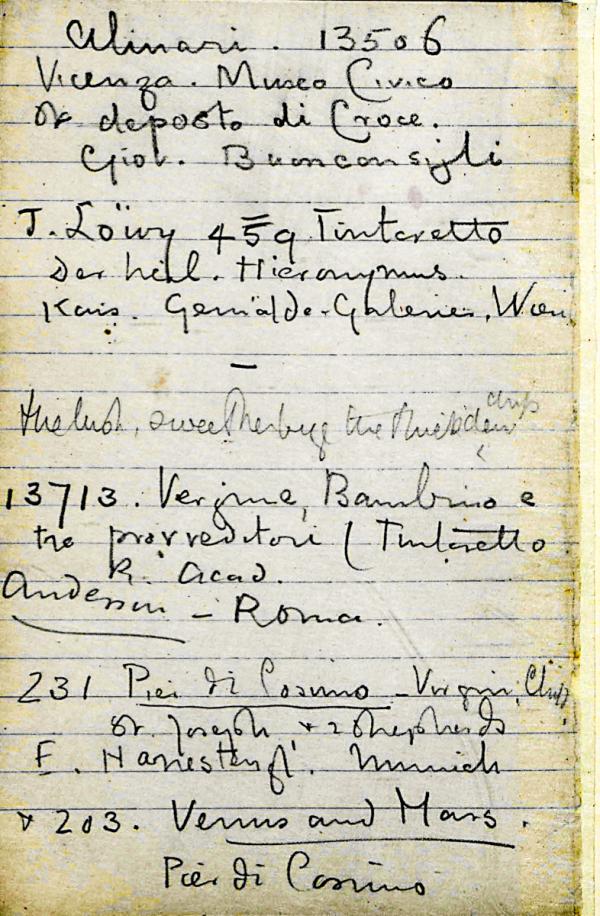 Alinari. 13506
Vicenza. Museo Civico
deposto di Croce.
Giov. Buonconsigli
J. Löwy 459 Tintoretto
Der heil. Hieronymus.
Kais. Gemälde-Galerie, Wien
the lush, sweet herbage the thick dew
13713. Vergine, Bambino e
tre provveditori (Tintoretto
R. Acad.
Anderson - Roma.
231 Pier di Cosimo - Virgin,
St. Joseph, + 2 Shepherds
F. Hanfstengl. Munich
203. Venus and Mars.
Pier di Cosimo